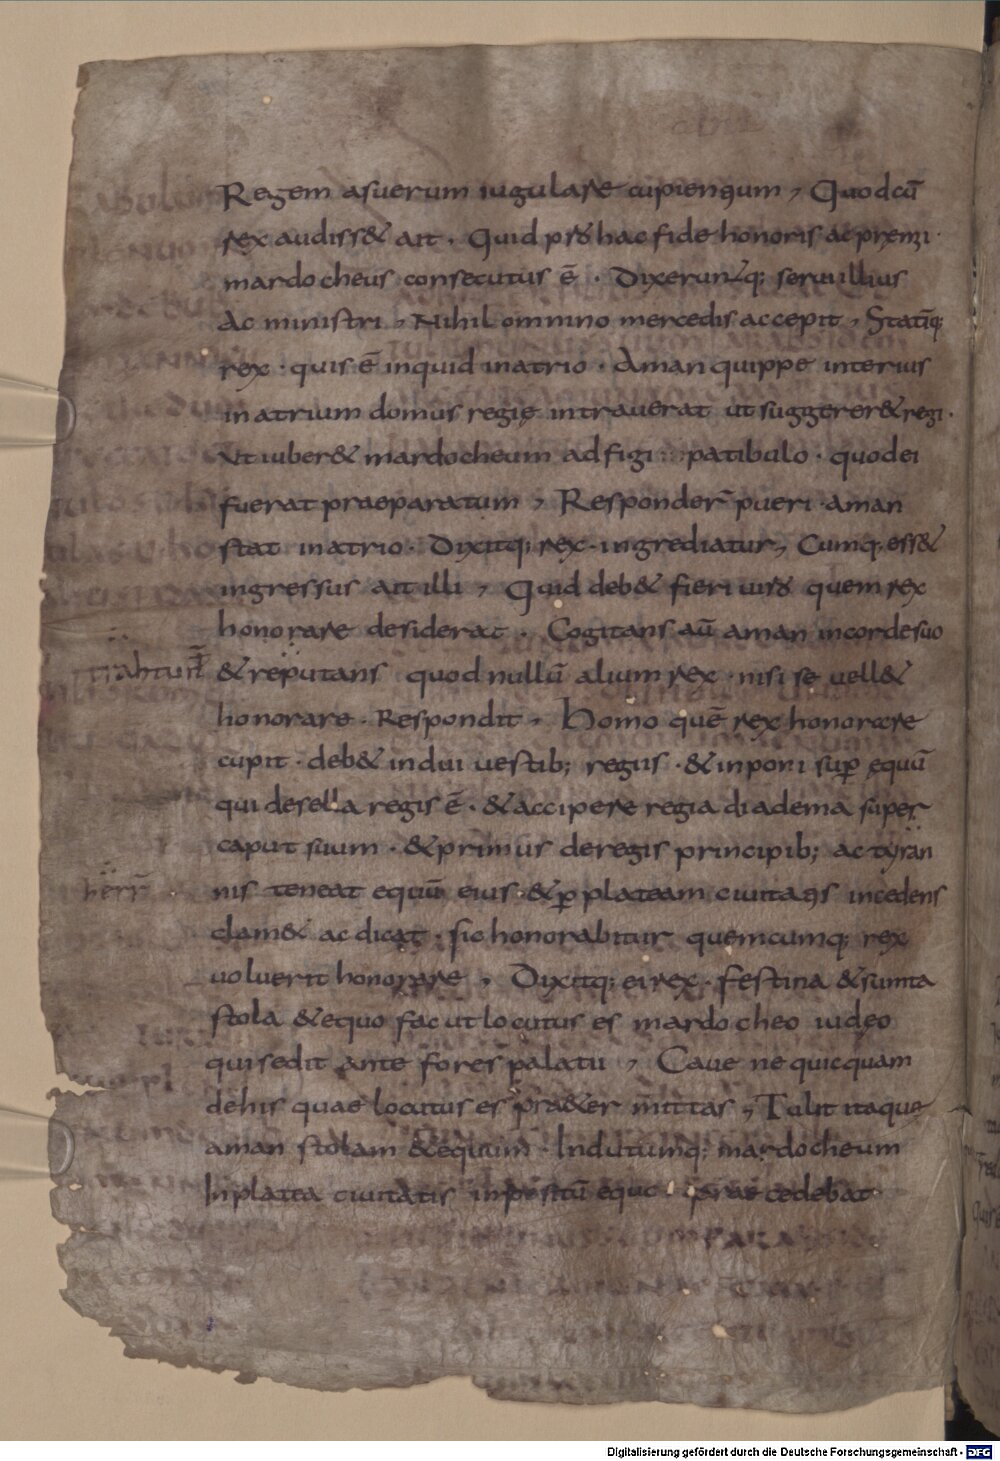 Regem asuerum iugulare cupientium , Quod cū
rex audiss& ait . Quid pro hac fide honoris ac premii .
mardocheus consecutus ē . Dixeruntq; serui illius
Ac ministri , Nihil omnino mercedis accepit , Statīq;
rex . quis ē inquid in atrio . Aman quippe interius
in atrium domus regię intrauerat ut suggerer& regi .
Ut iuber& mardocheum adfigi patibulo . quod ei
fuerat praeparatum , Responder̄ pueri . aman
stat in atrio . Dixitq; rex . ingrediatur , Cumq; ess&
ingressus ait illi , Quid deb& fieri uiro quem rex
honorare desiderat . Cogitans aū aman in corde suo
& reputans quod nullū alium rex nisi se uell&
honorare . Respondit . Homo quē rex honorare
cupit . deb& indui uestib; regiis . & inponi sup equū
qui de sella regis ē . & accipere regia diadema super
caput suum . & primus de regis principib; ac tyran
herr̄
nis teneat equū eius . & p plateam ciuitatis incedens
clam& ac dicat . sic honorabitur quemcumq; rex
uoluerit honorare , Dixitq; ei rex . festina & sumta
stola & equo fac ut locutus es mardocheo iudeo
qui sedit ante fores palatii , Caue ne quicquam
de his quae locutus es pra&er mittas , Tulit itaque
aman stolam & equum . Indutumq; mardocheum
In platea ciuitatis inpositū equo praecedebat
Digitalisierung gefördert durch die Deutsche Forschungsgemeinschaft - DFG